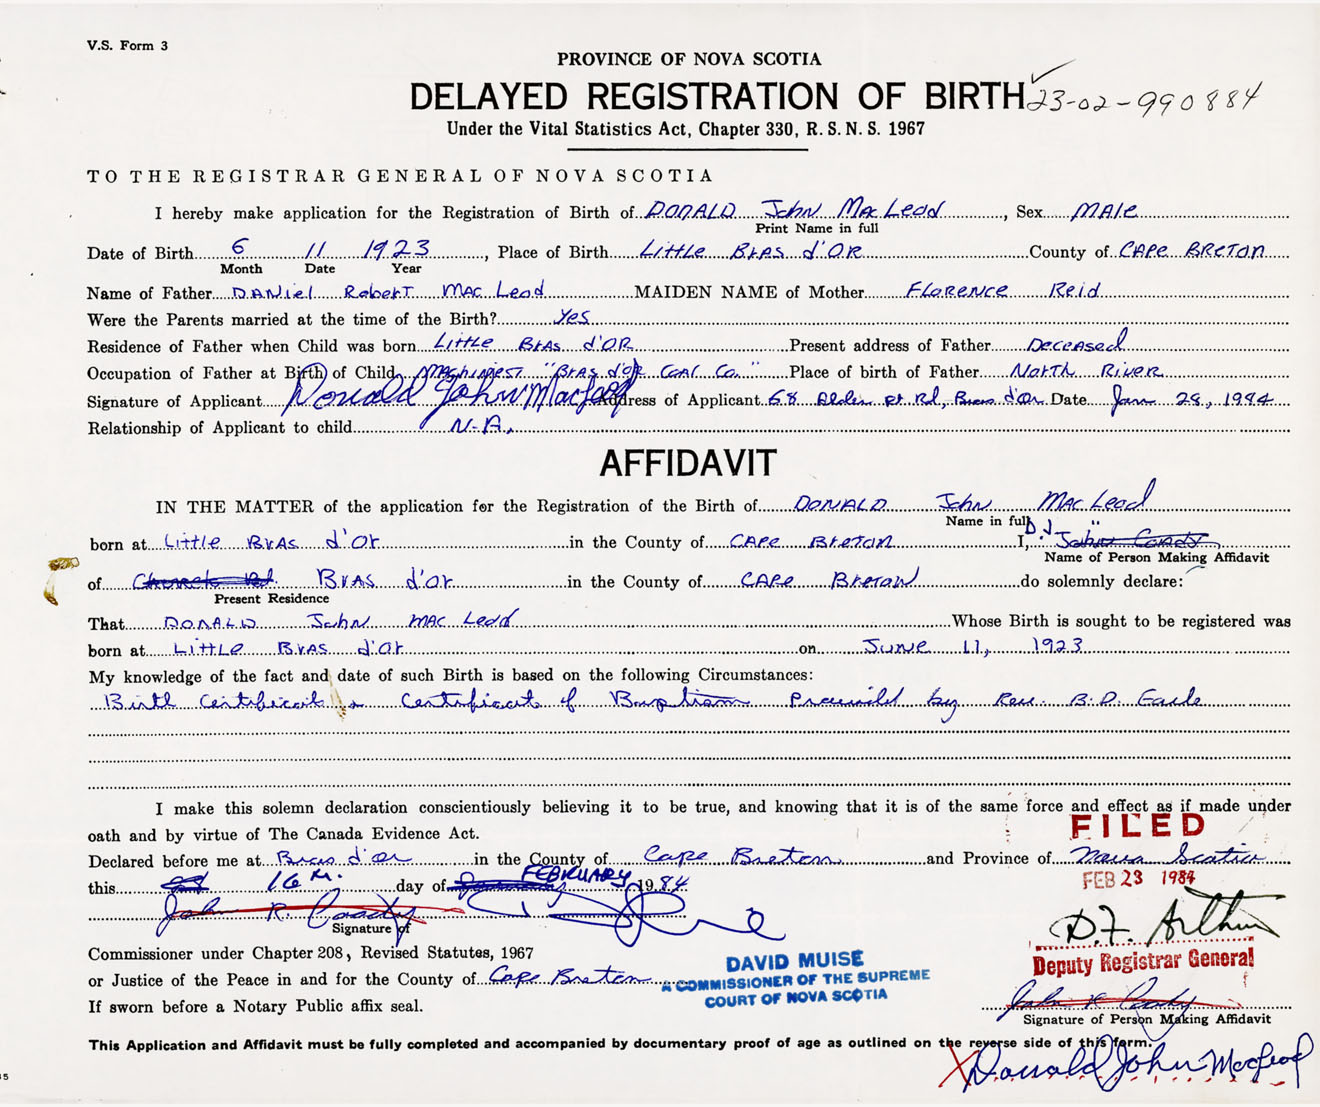 V.S. Form 3
PROVINCE OF NOVA SCOTIA
DELAYED REGISTRATION OF BIRTH 23-02-990884
Under the Vital Statistics Act, Chapter 330, R. S. N. S. 1967
TO THE REGISTRAR GENERAL OF NOVA SCOTIA
I hereby make application for the Registration of Birth of DONALD John MacLeod, Sex MAle
Print Name in full
Date of Birth 6 11 1923, Place of Birth Little BrAs d'OR County of CAPe BRETON
Month Date Year
Name of Father DANiel RoberT MAC Leod MAIDEN NAME of Mother FLORENCE Reid
Were the Parents married at the time of the Birth? Yes
Residence of Father when Child was born Little BrAs d'OR Present address of Father Deceased
Occupation of Father at Birth of Child MAchinest "BrAs d'OR COAL Co." Place of birth of Father North River
Signature of Applicant Donald John MacLeod Address of Applicant 68 Alder pt Rd, Bras d'or Date Jan 28, 1984
Relationship of Applicant to child N-A.
AFFIDAVIT
IN THE MATTER of the application for the Registration of the Birth of DONALD John MacLeod
Name in full
born at Little BrAs d'Or in the County of CAPe Breton I, D.J. " John Coady
Name of Person Making Affidavit
of Church Rd BrAs d'or in the County of CAPe Breton do solemnly declare:
Present Residence
That DONALD John MAC Leod Whose Birth is sought to be registered was
born at Little BrAs d'or on June 11, 1923
My knowledge of the fact and date of such Birth is based on the following Circumstances:
Birth Certificate & Certificate of Baptism Provided by Rev. B.D. Earle
I make this solemn declaration conscientiously believing it to be true, and knowing that it is of the same force and effect as if made under
oath and by virtue of The Canada Evidence Act.
FILED
Declared before me at Bras d'or in the County of Cape Breton and Province of Nova Scotia
this 16th. day of January FEBRUARY 1984
FEB 23 1984
John R. Coady
Signature of
D.F. Arthur
Deputy Registrar General
Commissioner under Chapter 208, Revised Statutes, 1967
or Justice of the Peace in and for the County of Cape Breton
DAVID MUISE
A COMMISSIONER OF THE SUPREME
COURT OF NOVA SCOTIA
If sworn before a Notary Public affix seal.
John R Coady
Signature of Person Making Affidavit
This Application and Affidavit must be fully completed and accompanied by documentary proof of age as outlined on the reverse side of this form.
X Donald John MacLeod